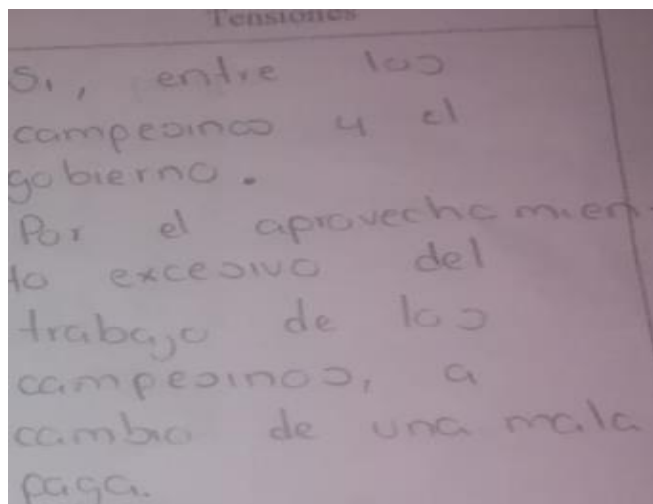 Tensiones
Si, entre los
campesinos y el
gobierno.
Por el aprovechamien-
to excesivo del
trabajo de los
campesinos, a
cambio de una mala
paga.